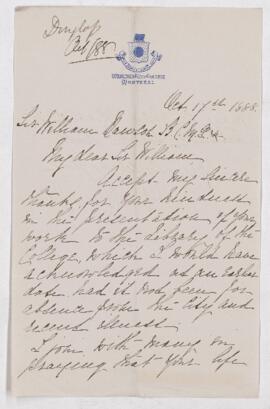 Dunlop
Oct/88
Montreal
Oct 17th 1888
Sir William Dawson K.C.M.G. &c
My dear Sir William,
Accept my sincere
thanks for your kindness
in the presentation of your
work to the Library of the
College, which I would have
acknowledged at an earlier
date had it not been for
absence from the City and
recent illness.
I join with many in
praying that your life